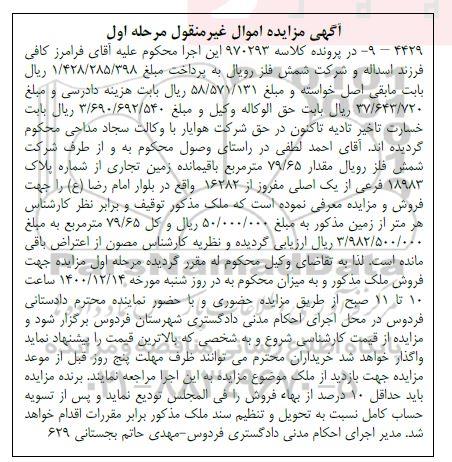 آگهی مزایده اموال غیرمنقول مرحله اول
۴۴۲۹ – ۹- در پرونده کلاسه ۹۷۰۲۹۳ این اجرا محکوم علیه آقای فرامرز کافی
فرزند اسداله و شرکت شمش فلز رویال به پرداخت مبلغ ۱/۴۲۸/۲۸۵/۳۹۸ ریال
بابت مابقی اصل خواسته و مبلغ ۵۸/۵۷۱/۱۳۱ ریال بابت هزینه دادرسی و مبلغ
۳۷/۶۴۳/۷۲۰ ریال بابت حق الوکاله وکیل و مبلغ ۳/۶۹۰/۶۹۲/۵۴۰ ریال بابت
خسارت تاخیر تادیه تاکنون در حق شرکت هوایار با وکالت سجاد مداحی محکوم
گردیده اند. آقای احمد لطفی در راستای وصول محکوم به و از طرف شرکت
شمش فلز رویال مقدار ۷۹/۶۵ مترمربع باقیمانده زمین تجاری از شماره پلاک
۱۸۹۸۳ فرعی از یک اصلی مفروز از ۱۶۲۸۲ واقع در بلوار امام رضا (ع) را جهت
فروش و مزایده معرفی نموده است که ملک مذکور توقیف و برابر نظر کارشناس
هر متر از زمین مذکور به مبلغ ۵۰/۰۰۰/۰۰۰ ریال و کل ۷۹/۶۵ مترمربع به مبلغ
۳/۹۸۲/۵۰۰/۰۰۰ ریال ارزیابی گردیده و نظریه کارشناس مصون از اعتراض باقی
مانده است. لذا به تقاضای وکیل محکوم له مقرر گردیده مرحله اول مزایده جهت
فروش ملک مذکور و به میزان محکوم به در روز شنبه مورخه ۱۴۰۰/۱۲/۱۴ ساعت
۱۰ تا ۱۱ صبح از طریق مزایده حضوری و با حضور نماینده محترم دادستانی
فردوس در محل اجرای احکام مدنی دادگستری شهرستان فردوس برگزار شود و
مزایده از قیمت کارشناسی شروع و به شخصی که بالاترین قیمت را پیشنهاد نماید
واگذار خواهد شد خریداران محترم می توانند ظرف مهلت پنج روز قبل از موعد
مزایده جهت بازدید از ملک موضوع مزایده به این اجرا مراجعه نمایند. برنده مزایده
باید حداقل ۱۰ درصد از بهاء فروش را فی المجلس تودیع نماید و پس از تسویه
حساب کامل نسبت به تحویل و تنظیم سند ملک مذکور برابر مقررات اقدام خواهد
شد. مدیر اجرای احکام مدنی دادگستری فردوس-مهدی حاتم بجستانی ۶۲۹